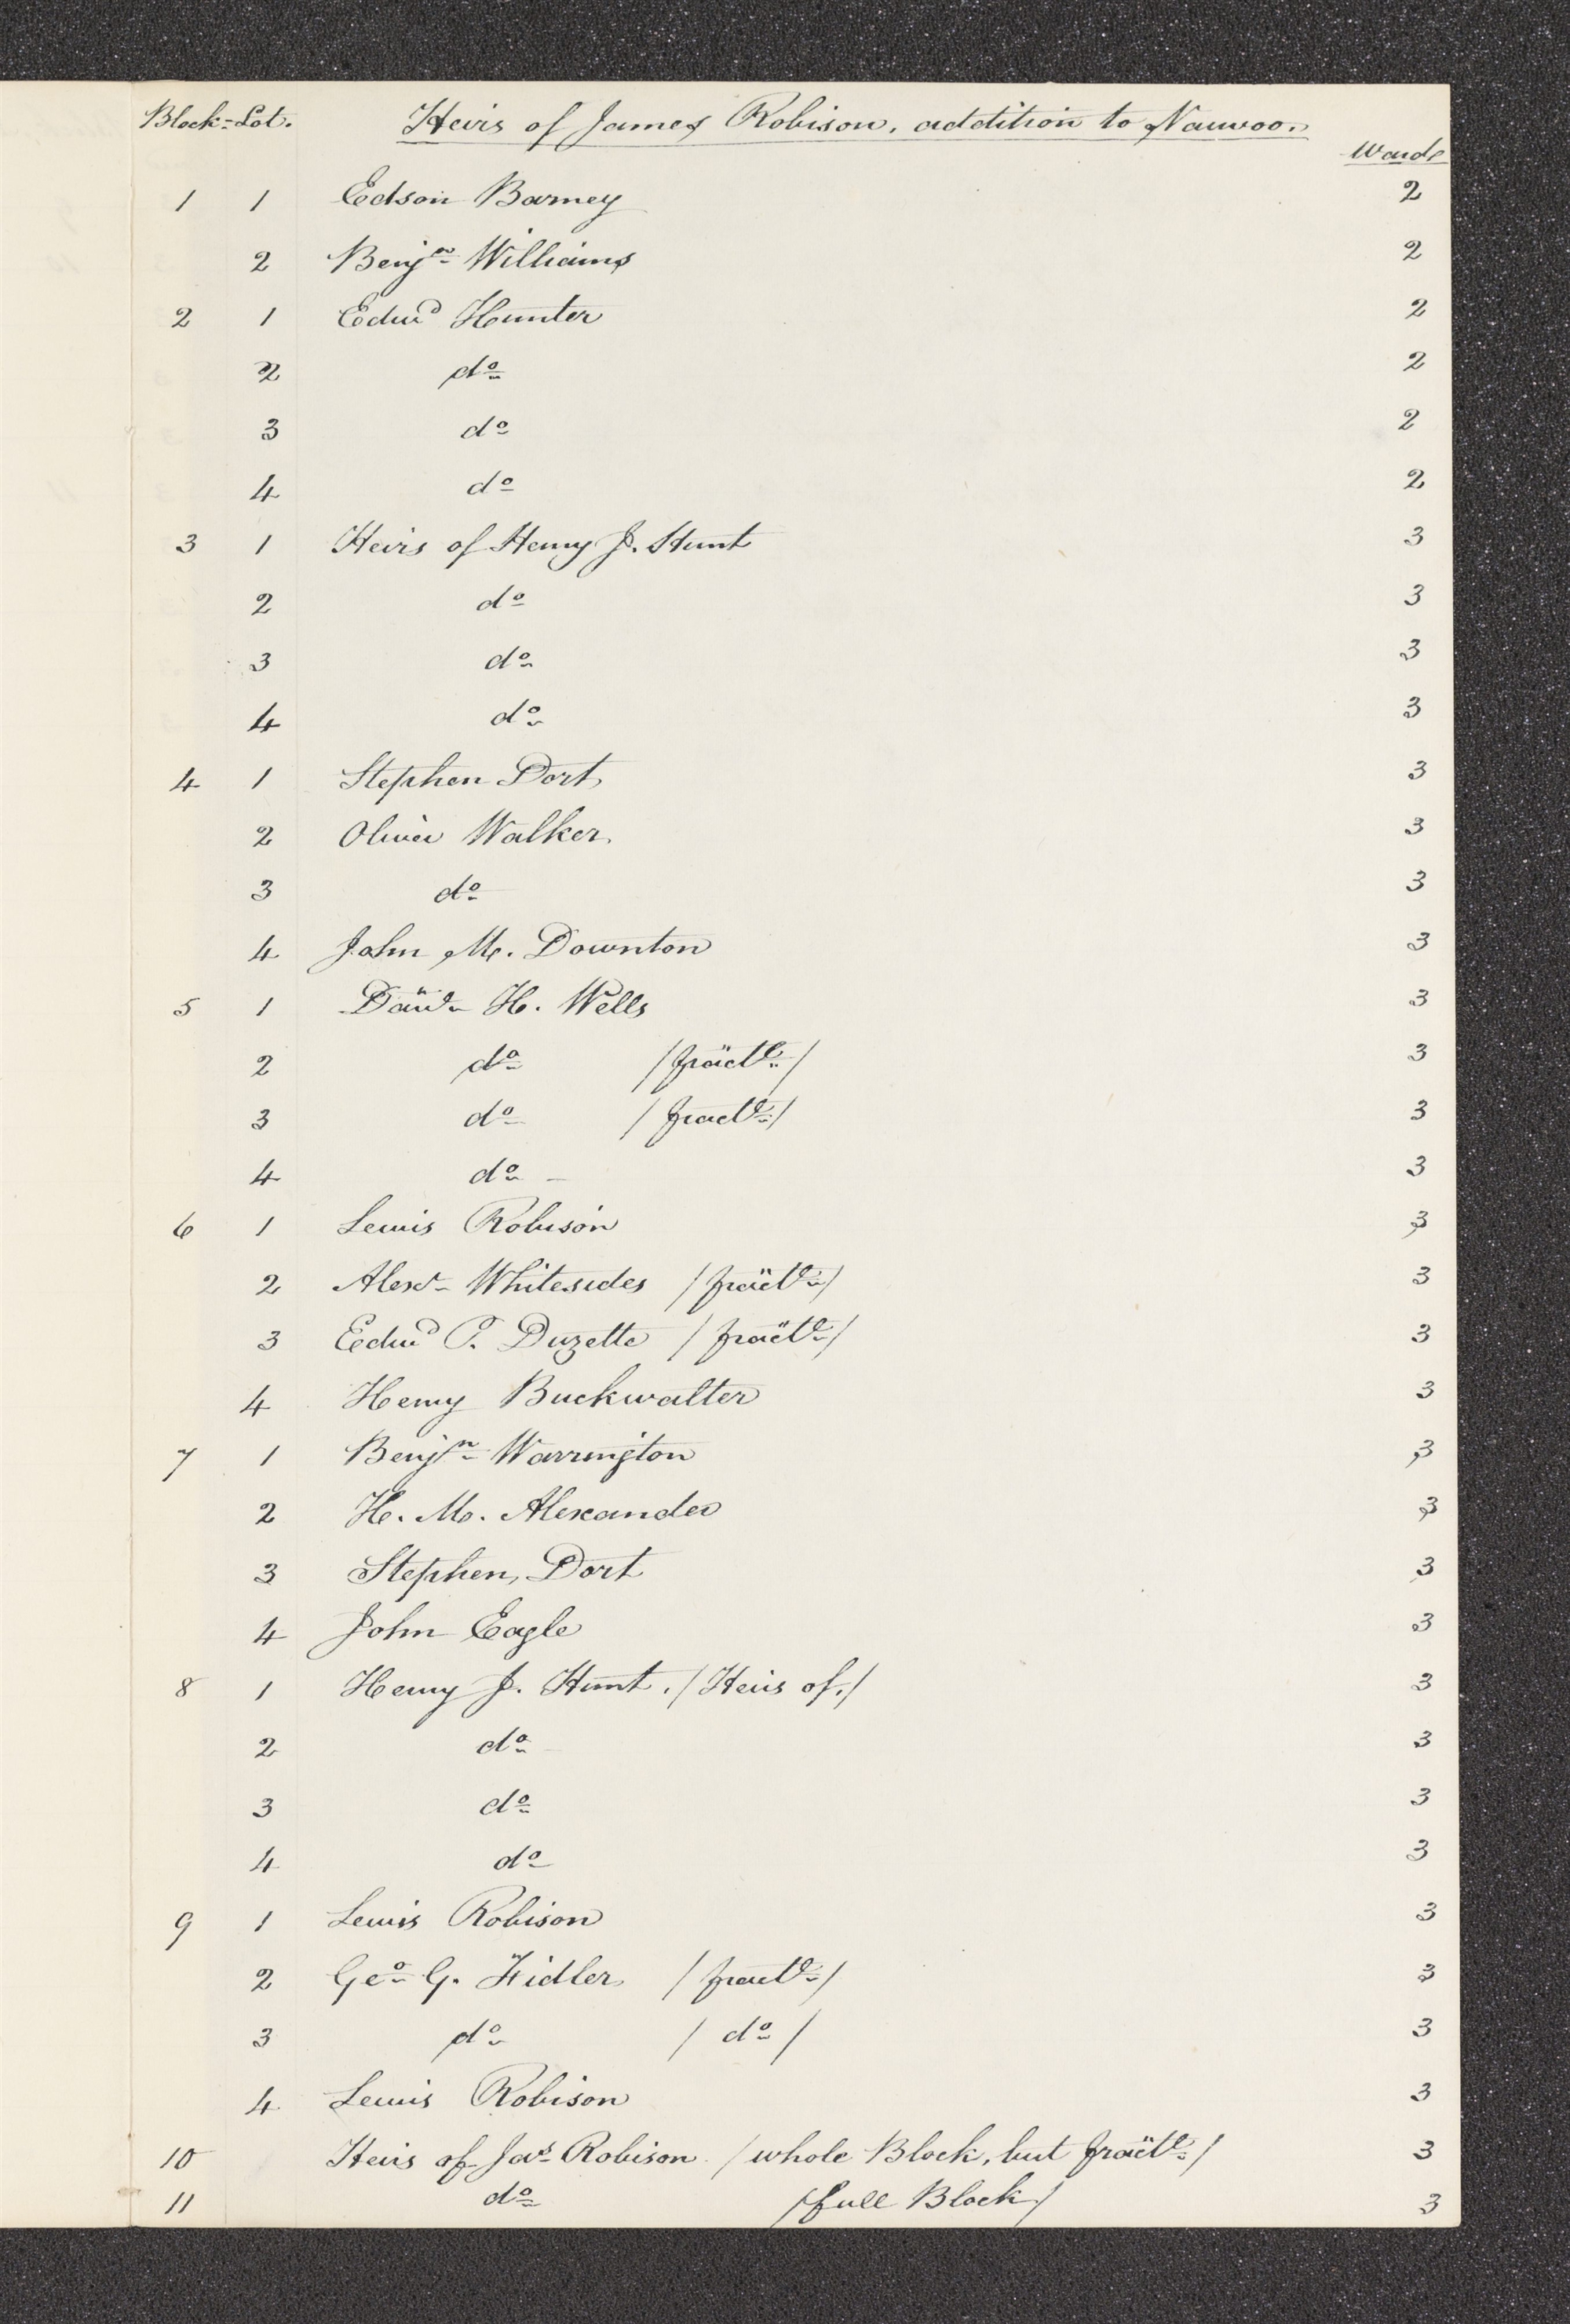 Block= Lot. Heirs of James Robison, addition to Nauvoo.
Ward
1 1 Edson Barney 2
2 Benjn Williams 2
2 1 Edwd Hunter 2
2 do 2
3 do 2
4 do 2
3 1 Heirs of Henry J. Hunt 3
2 do 3
3 do 3
4 do 3
4 1 Stephen Dort 3
2 Oliver Walker 3
3 do 3
4 John M. Downton 3
5 1 Danl H. Wells 3
2 do /fractl/ 3
3 do /fractl/ 3
4 do - 3
6 1 Lewis Robison 3
2 Alexr Whitesides /fractl/ 3
3 Edwd P. Duzette /fractl/ 3
4 Henry Buckwalter 3
7 1 Benjn Warrington 3
2 H. M. Alexander 3
3 Stephen, Dort 3
4 John Eagle 3
8 1 Henry J. Hunt. /Heirs of./ 3
2 do 3
3 do 3
4 do 3
9 1 Lewis Robison 3
2 Geo G. Fidler /fractl/ 3
3 do / do / 3
4 Lewis Robison 3
10 Heirs of Jas Robison /whole Block, but fractl/ 3
11 do /full Block/ 3